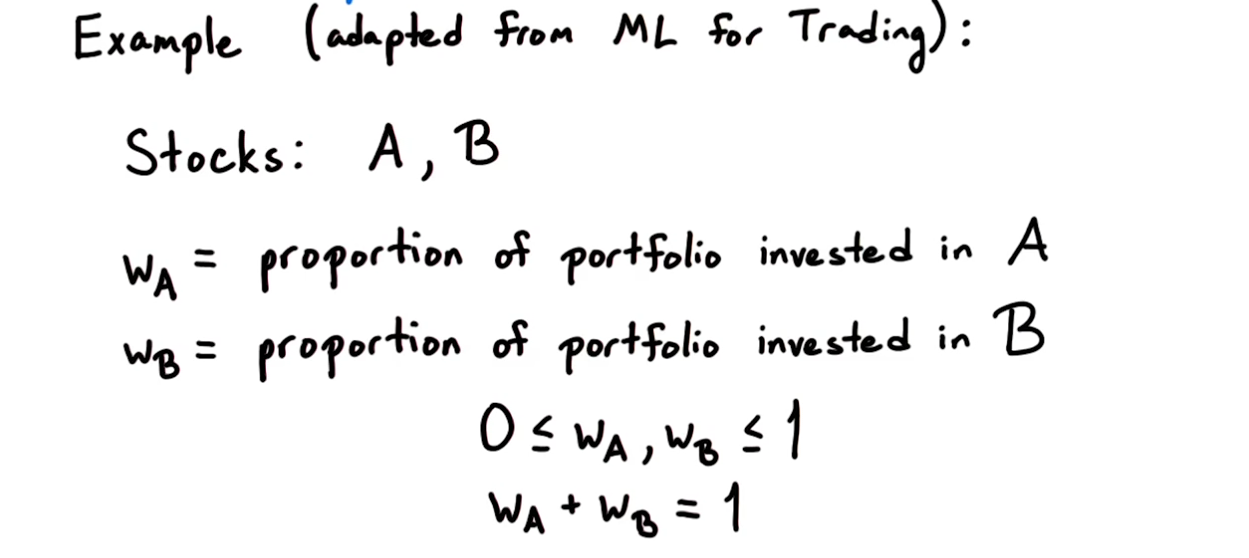 Example (adapted from ML for Trading):
Stocks: A, B
w_A = proportion of portfolio invested in A
w_B = proportion of portfolio invested in B
0 ≤ w_A, w_B ≤ 1
w_A + w_B = 1